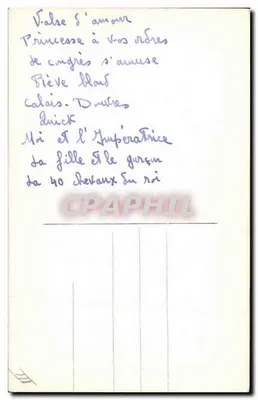 Valse d'amour
Princesse à vos ordres
Le congrès s'amuse
Rêve blond
Calais-Douvres
Quick
Moi et l'Impératrice
La fille et le garçon
La 40 chevaux du roi
CPAPHIL